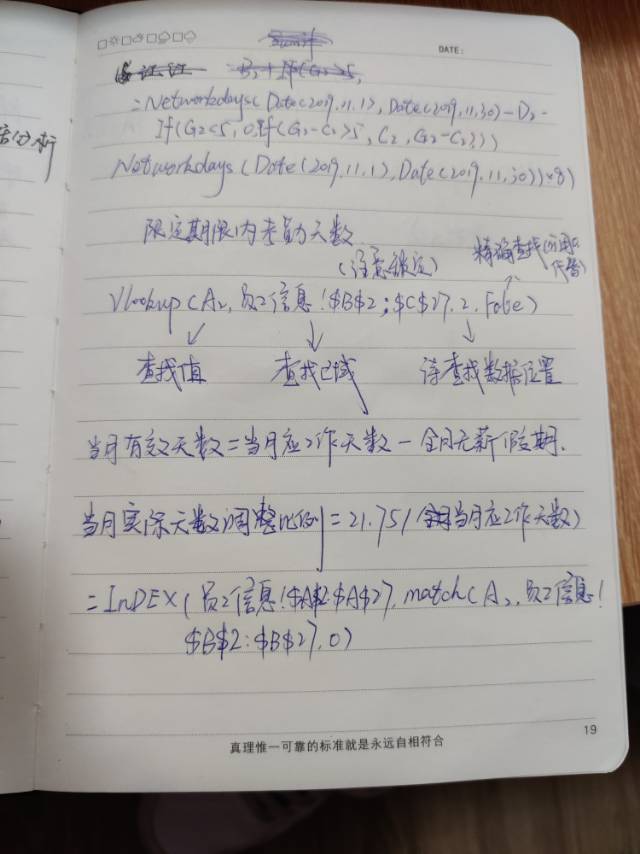 DATE:
=Networkdays(Date(2019.11.1),Date(2019.11.30)-D2-
If(G2<5,0,If(G2-C2>5,C2,G2-C2)))
Networkdays(Date(2019.11.1),Date(2019.11.30))*8)
限定期限内考勤天数
(注意锁定)
精确查找(可用0
代替)
Vlookup(A2,员工信息!$B$2:$C$27.2.False)
查找值 查找区域 待查找数据位置
当月有效天数=当月应工作天数-全月无薪假期.
当月实际天数调整比例=21.75/(当月应工作天数)
=InDEX(员工信息!$A$2:$A$27,match(A2,员工信息!
$B$2:$B$27,0)
真理惟一可靠的标准就是永远自相符合
19